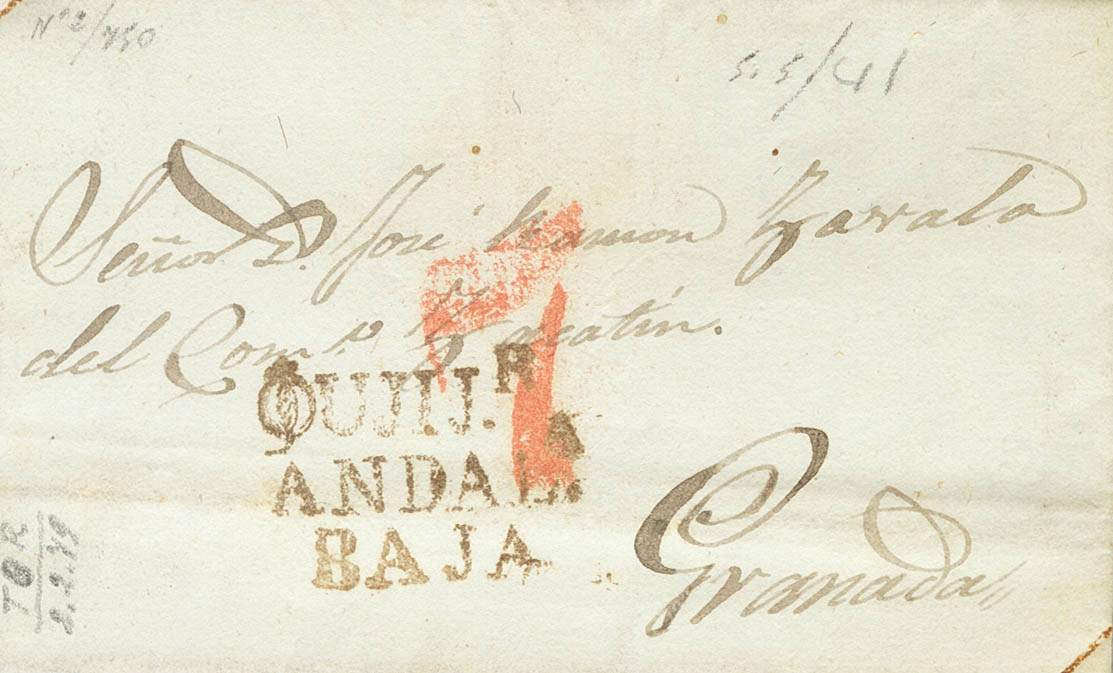 Nº 2/750
S.5/41
Señor D. José Ramon Zavala
del Comº Zacatín.
7
QUIIJ.R
ANDALA
BAJA
Granada
TOR